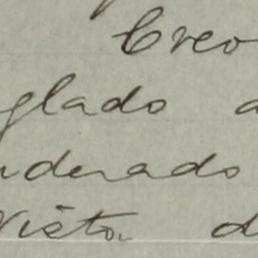 Creo
glado a
nderado
Victor d